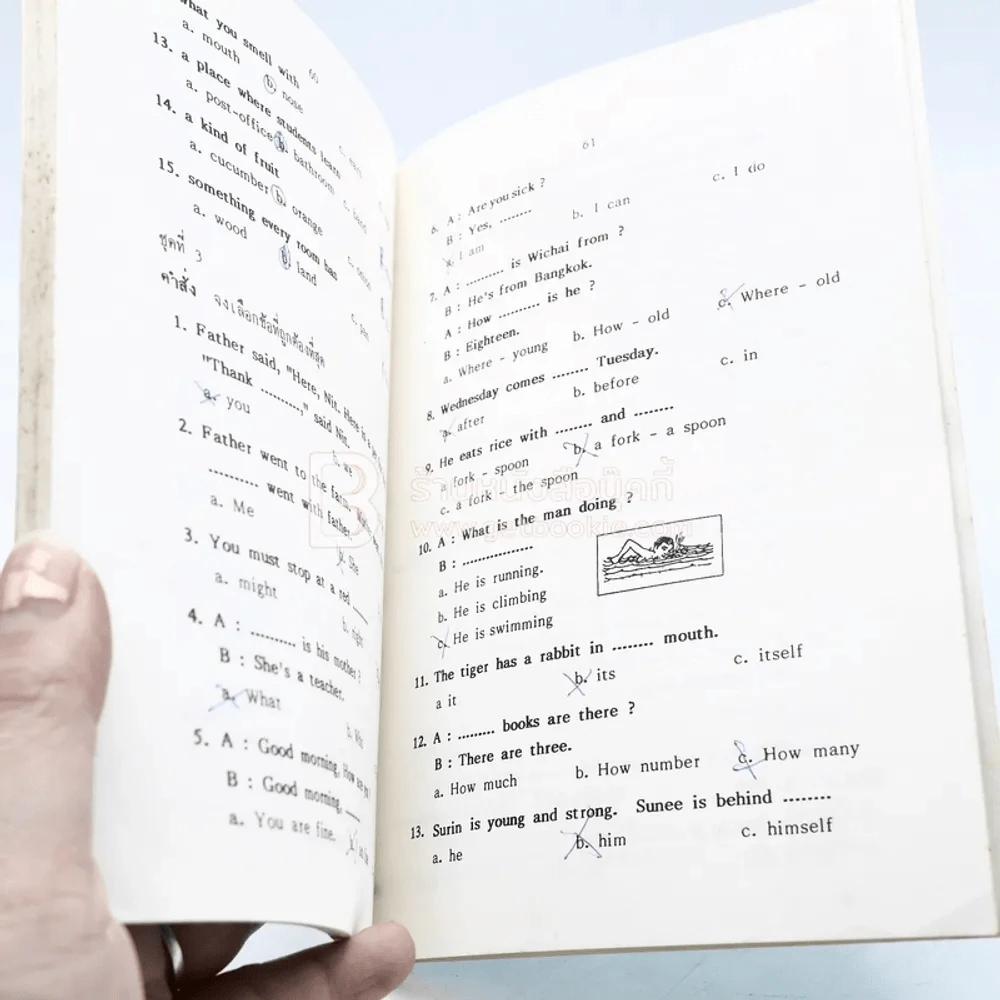 what you smell with
a. mouth b. nose c. ear
60
13. a place where students learn
a. post-office b. bathroom
14. a kind of fruit
a. cucumber b. orange c. onion
15. something every room has
a. wood b. land
ชุดที่ 3
คำสั่ง จงเลือกข้อที่ถูกต้องที่สุด
1. Father said, "Here, Nit. Here is a
"Thank ..........," said Nit.
a. you
2. Father went to the farm,
.......... went with father.
a. Me b. She
3. You must stop at a red
a. might b. right
4. A : .......... is his mother ?
B : She's a teacher.
a. What b. Who
5. A : Good morning, How are you
B : Good morning,
a. You are fine.
61
6. A : Are you sick ?
B : Yes, ........
a. I am b. I can c. I do
7. A : .......... is Wichai from ?
B : He's from Bangkok.
A : How .......... is he ?
B : Eighteen.
a. Where - young b. How - old c. Where - old
8. Wednesday comes ........ Tuesday.
a. after b. before c. in
9. He eats rice with ........ and ........
a fork - spoon b. a fork - a spoon
c. a fork - the spoon
ร้านหนังสือบุ๊กกี้
www.getbookie.com
10. A : What is the man doing ?
B : ..............
a. He is running.
b. He is climbing
c. He is swimming
11. The tiger has a rabbit in ........ mouth.
a it b. its c. itself
12. A : ......... books are there ?
B : There are three.
a. How much b. How number c. How many
13. Surin is young and strong. Sunee is behind ........
a. he b. him c. himself